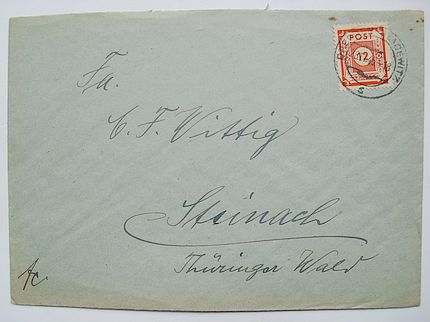 POST
12
Fa.
C. F. Wittig
Steinach
Thüringer Wald